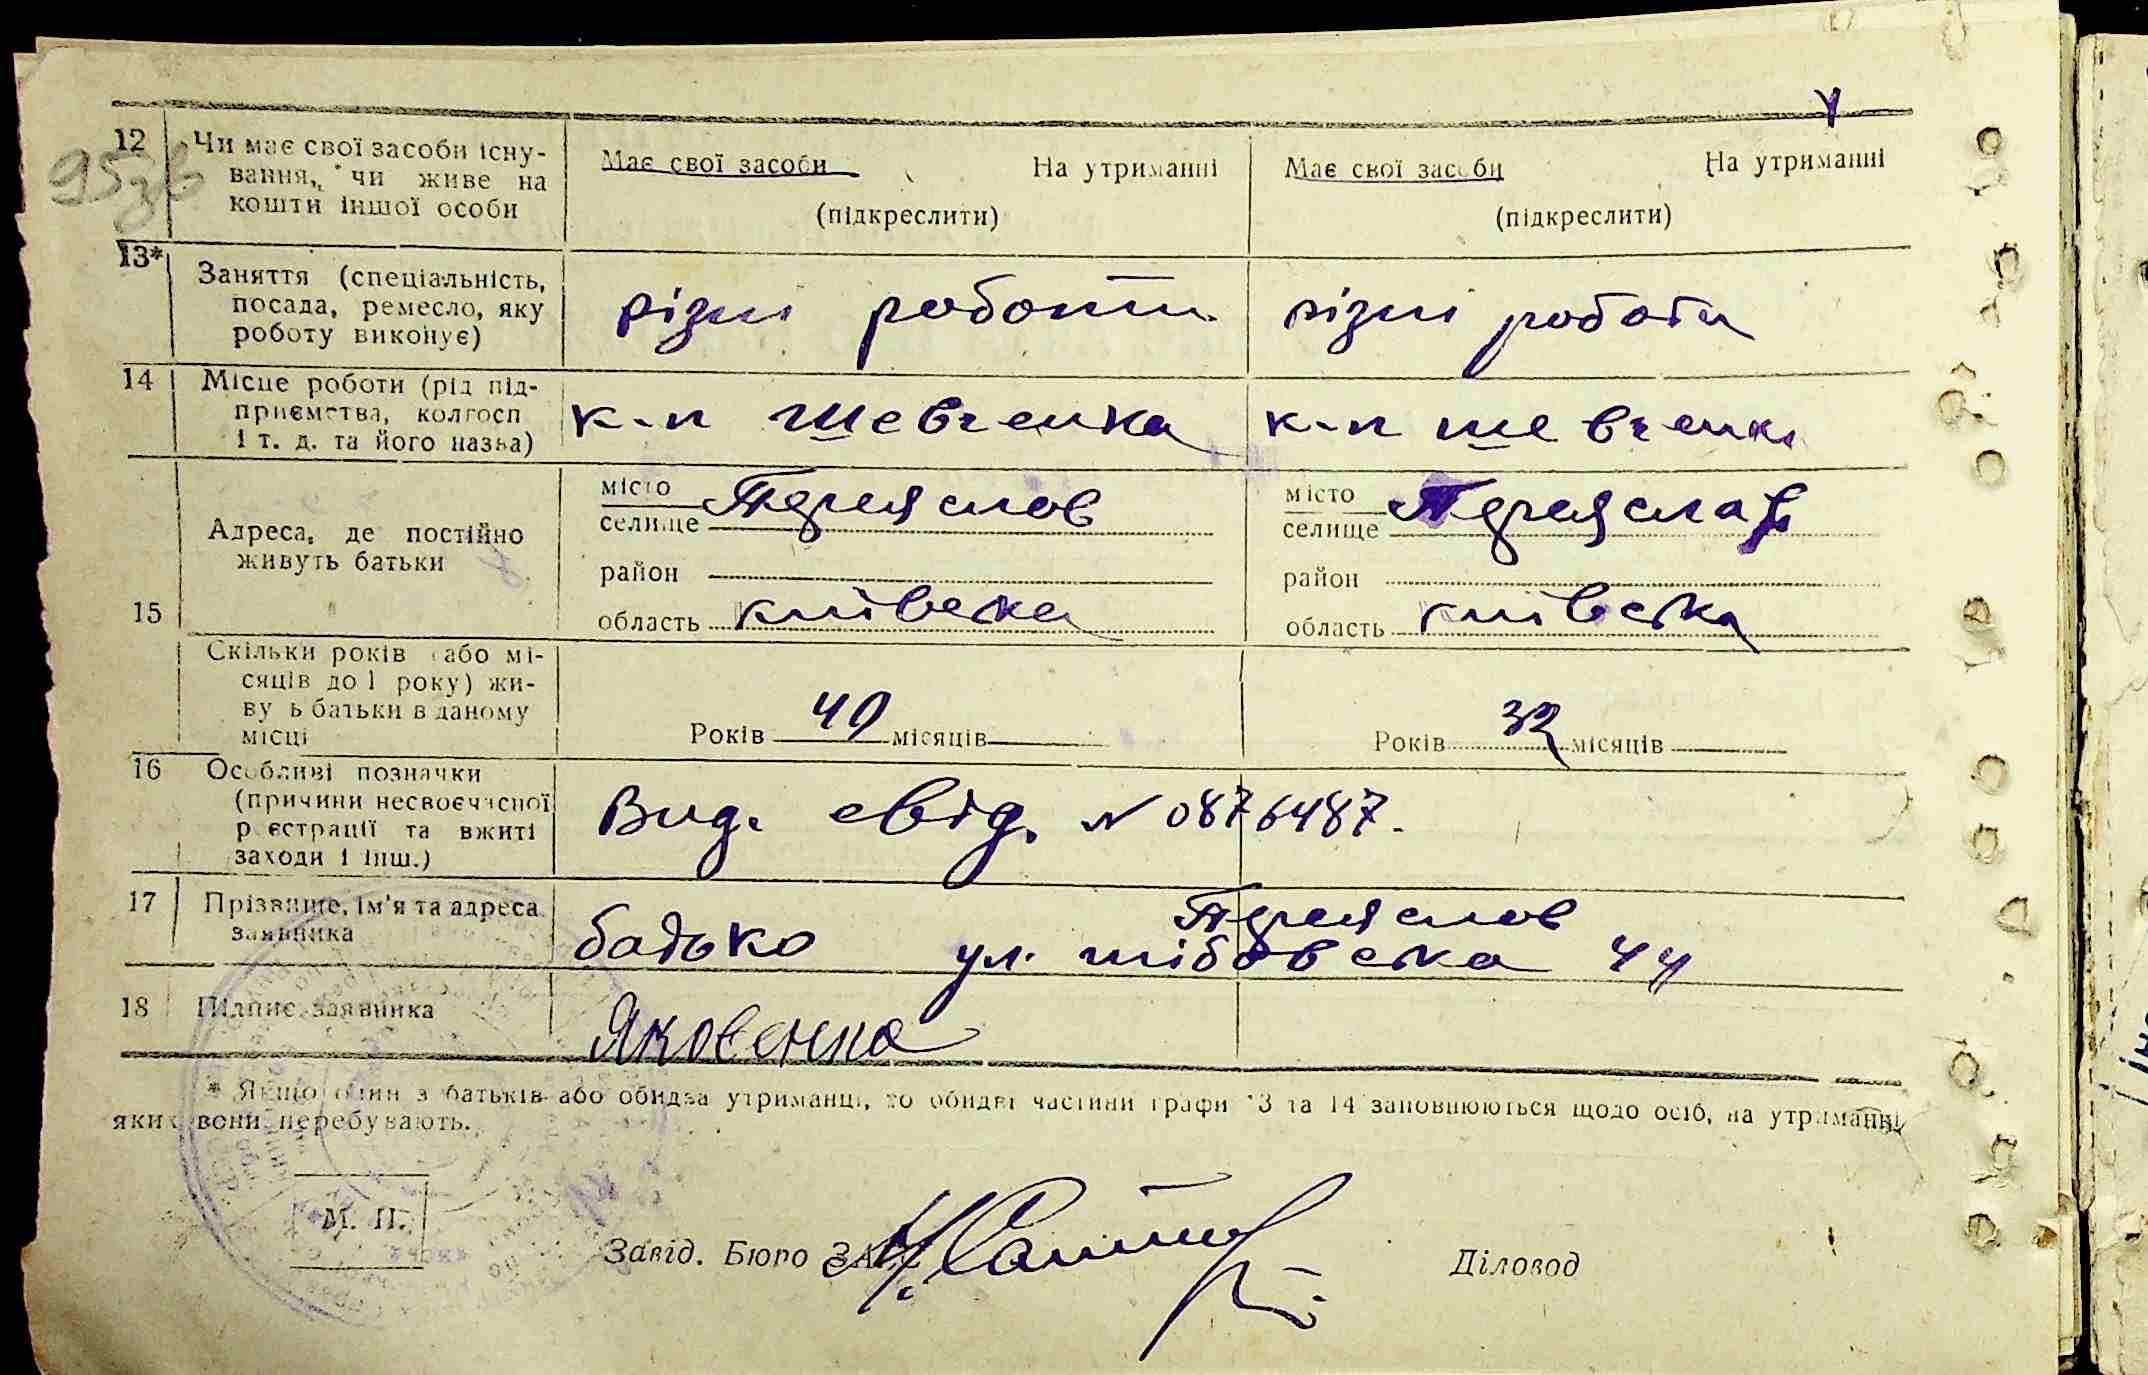 12 Чи має свої засоби існу-
вання, чи живе на
кошти іншої особи
Має свої засоби На утриманні
(підкреслити)
Має свої засоби На утриманні
(підкреслити)
13* Заняття (спеціальність,
посада, ремесло, яку
роботу виконує)
різні роботи
різні роботи
14 Місце роботи (рід під-
приємства, колгосп
і т. д. та його назва)
к-п Шевченка
к-п Шевченка
15 Адреса, де постійно
живуть батьки
місто
селище Переяслов
район
область київска
місто
селище Переяслав
район
область київска
Скільки років або мі-
сяців до 1 року) жи-
ву ь батьки в даному
місці
Років 40 місяців
Років 32 місяців
16 Особливі позначки
(причини несвоєчасної
реєстрації та вжиті
заходи і інш.)
Вид. свід. N 0876487.
17 Прізвище, ім'я та адреса
заявника
Переяслов
батько ул. шібовска 44
18 Підпис заявника
Яковенко
* Якщо один з батьків або обидва утриманці, то обидві частини графи 13 та 14 заповнюються щодо осіб, на утриманні
яких вони перебувають.
М. П.
Завід. Бюро ЗАГС
Діловод